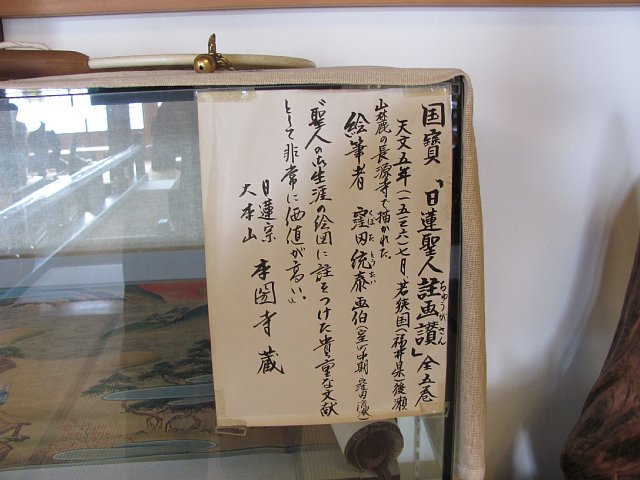 国寳「日蓮聖人註画讃」全五巻
ちゅうがさん
天文五年(一五三六)七月、若狭国(福井県)後瀬
山麓の長源寺で描かれた。
絵筆者 窪田統泰画伯(室町中期
くぼた とうたい
"聖人の御生涯の絵図に註をつけた貴重な文献
として非常に価値が高い"
日蓮宗
大本山 本圀寺蔵